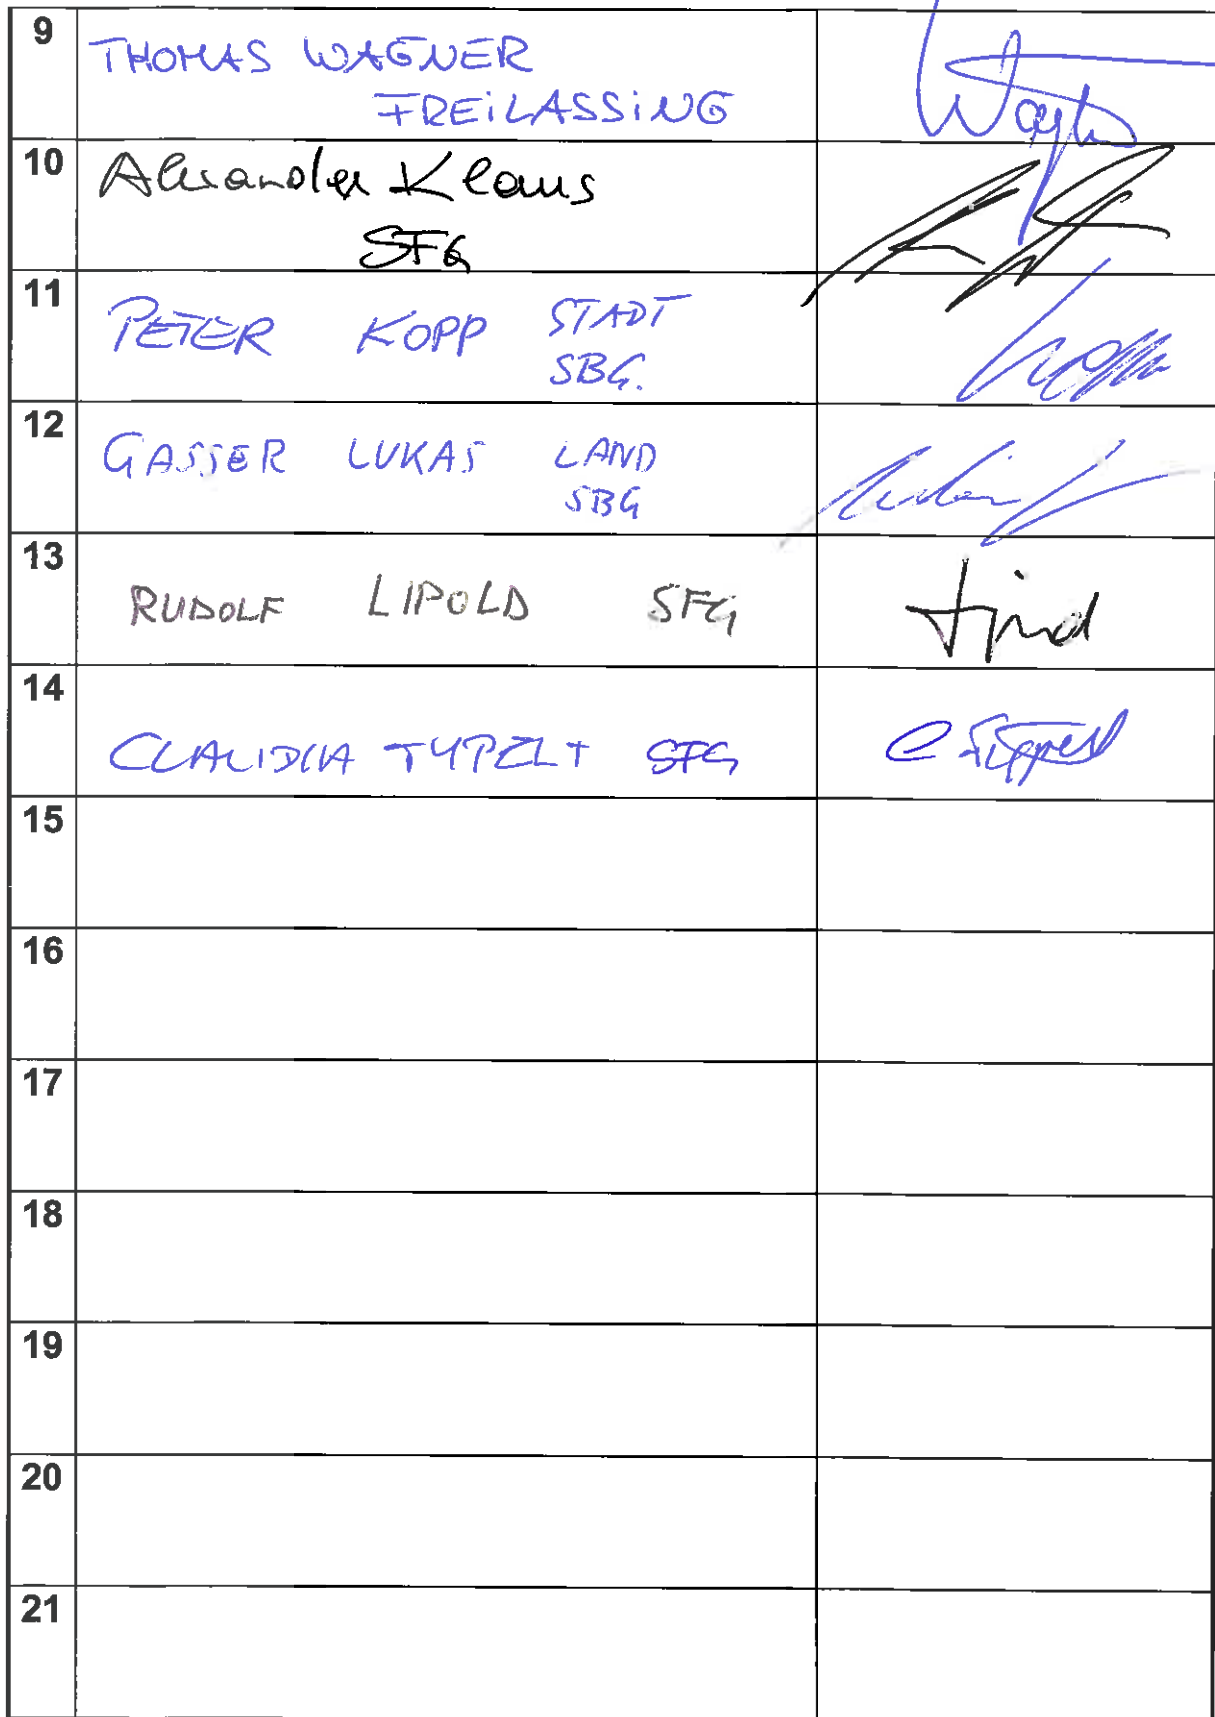 9
THOMAS WAGNER
FREiLASSiNG
10 Alexander Klaus
SFG
11
PETER KOPP STADT
SBG.
12
GASSER LUKAS LAND
SBG
13
RUDOLF LIPOLD SFG
14
CLAUDIA TYPELT SFG
15
16
17
18
19
20
21